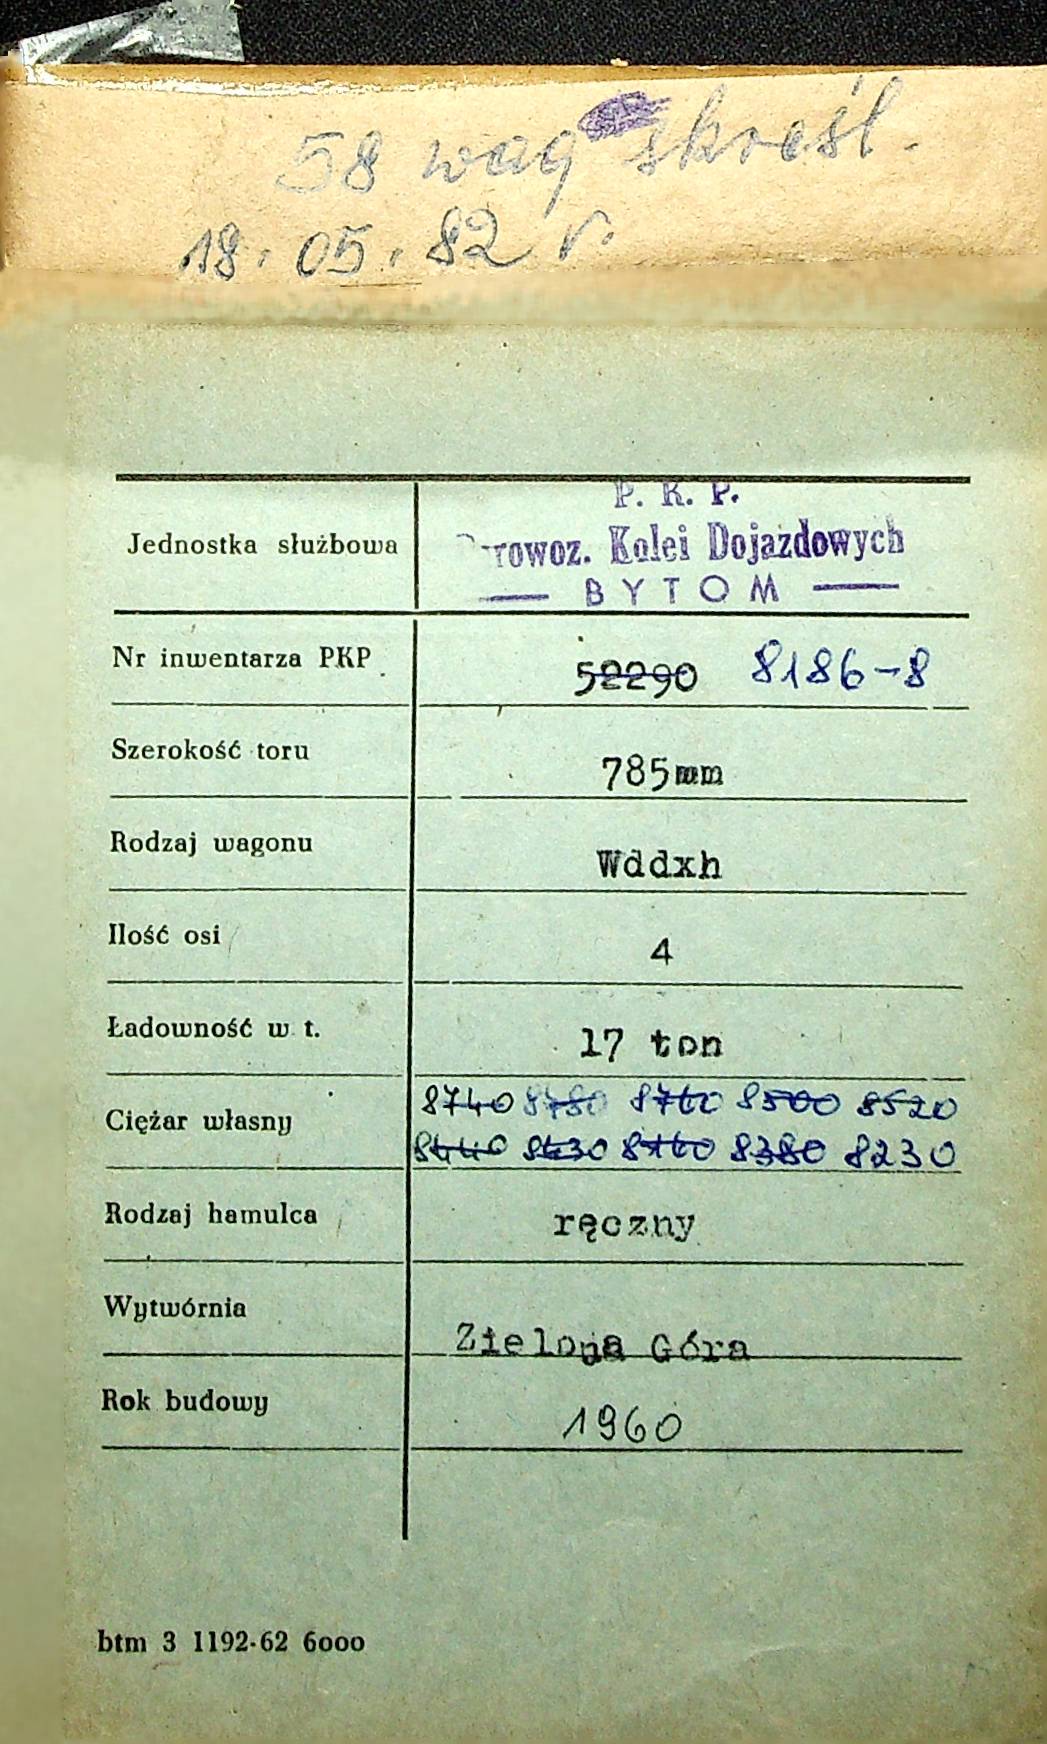 58 wag skreśl.
18.05.82 r.
P. K. P.
Jednostka służbowa rowoz. Kolei Dojazdowych
BYTOM
Nr inwentarza PKP 52290 8186-8
Szerokość toru 785mm
Rodzaj wagonu Wddxh
Ilość osi 4
Ładowność w t. 17 ton
8740 8780 8760 8500 8520
Ciężar własny
8440 8430 8460 8380 8230
Rodzaj hamulca ręczny
Wytwórnia Zielona Góra
Rok budowy 1960
btm 3 1192-62 6000